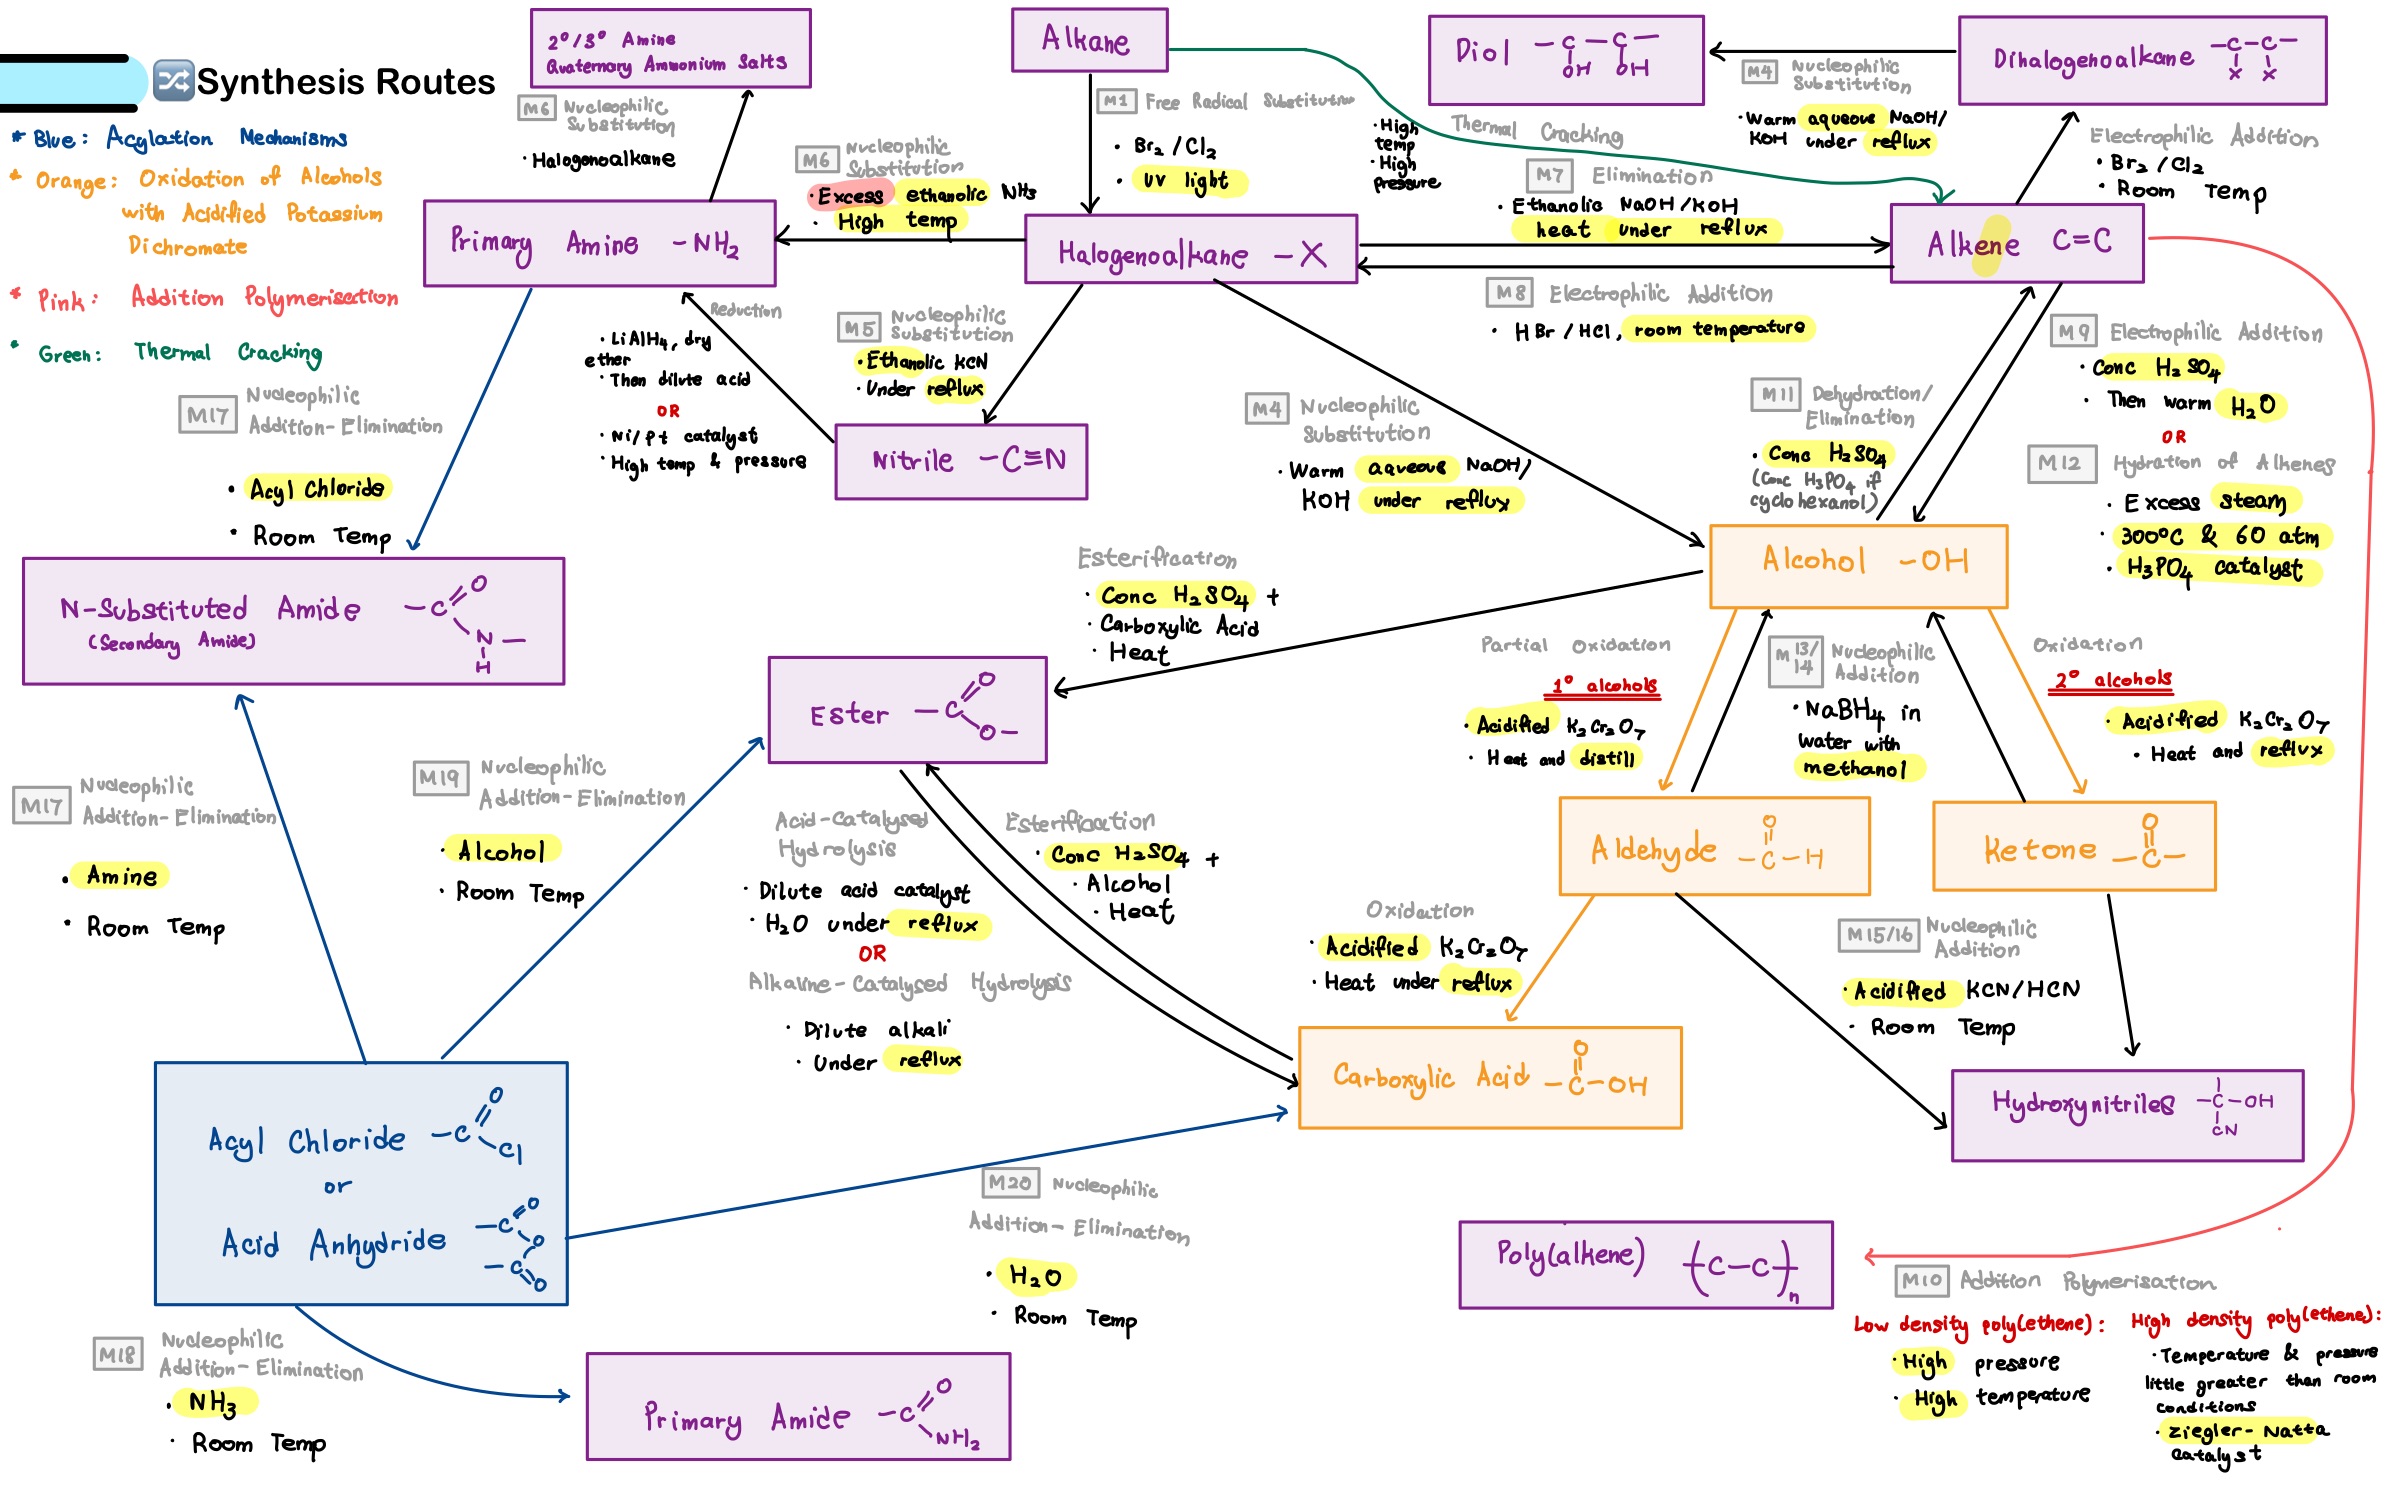 Synthesis Routes
* Blue: Acylation Mechanisms
* Orange: Oxidation of Alcohols
with Acidified Potassium
Dichromate
* Pink: Addition Polymerisation
* Green: Thermal Cracking
2°/3° Amine
Quaternary Ammonium Salts
M6 Nucleophilic
Substitution
· Halogenoalkane
Alkane
M1 Free Radical Substitution
· Br₂/Cl₂
· UV light
· High
temp
· High
Pressure
Thermal Cracking
Diol -C-C-
OH OH
M4 Nucleophilic
Substitution
· Warm aqueous NaOH/
KOH under reflux
Dihalogenoalkane -C-C-
X X
Electrophilic Addition
· Br₂/Cl₂
· Room Temp
M6 Nucleophilic
Substitution
· Excess ethanolic NH₃
· High temp
Primary Amine -NH₂
Halogenoalkane -X
M7 Elimination
· Ethanolic NaOH/KOH
heat under reflux
Alkene C=C
M8 Electrophilic Addition
· HBr/HCl, room temperature
Reduction
· LiAlH₄, dry
ether
· Then dilute acid
OR
· Ni/Pt catalyst
· High temp & pressure
M5 Nucleophilic
Substitution
· Ethanolic KCN
· Under reflux
Nitrile -C≡N
M4 Nucleophilic
Substitution
· Warm aqueous NaOH/
KOH under reflux
M11 Dehydration/
Elimination
· Conc H₂SO₄
(Conc H₃PO₄ if
cyclohexanol)
M9 Electrophilic Addition
· Conc H₂SO₄
· Then warm H₂O
OR
M12 Hydration of Alkenes
· Excess steam
· 300°C & 60 atm
· H₃PO₄ catalyst
M17 Nucleophilic
Addition-Elimination
· Acyl Chloride
· Room Temp
N-Substituted Amide -C=O
(Secondary Amide) N-
H
Alcohol -OH
Esterification
· Conc H₂SO₄ +
· Carboxylic Acid
· Heat
Ester -C=O
O-
Partial Oxidation
1° alcohols
· Acidified K₂Cr₂O₇
· Heat and distill
M13/14 Nucleophilic
Addition
· NaBH₄ in
water with
methanol
Oxidation
2° alcohols
· Acidified K₂Cr₂O₇
· Heat and reflux
M17 Nucleophilic
Addition-Elimination
· Amine
· Room Temp
M19 Nucleophilic
Addition-Elimination
· Alcohol
· Room Temp
Acid-Catalysed
Hydrolysis
· Dilute acid catalyst
· H₂O under reflux
OR
Alkaline-Catalysed Hydrolysis
· Dilute alkali
· Under reflux
Esterification
· Conc H₂SO₄ +
· Alcohol
· Heat
Aldehyde O
-C-H
Ketone O
-C-
Oxidation
· Acidified K₂Cr₂O₇
· Heat under reflux
M15/16 Nucleophilic
Addition
· Acidified KCN/HCN
· Room Temp
Carboxylic Acid O
-C-OH
Hydroxynitriles -C-OH
CN
Acyl Chloride -C=O
Cl
or
Acid Anhydride -C=O
O
-C=O
M20 Nucleophilic
Addition-Elimination
· H₂O
· Room Temp
M18 Nucleophilic
Addition-Elimination
· NH₃
· Room Temp
Primary Amide -C=O
NH₂
Poly(alkene) (C-C)n
M10 Addition Polymerisation
Low density poly(ethene):
· High pressure
· High temperature
High density poly(ethene):
· Temperature & pressure
little greater than room
conditions
· Ziegler-Natta
catalyst